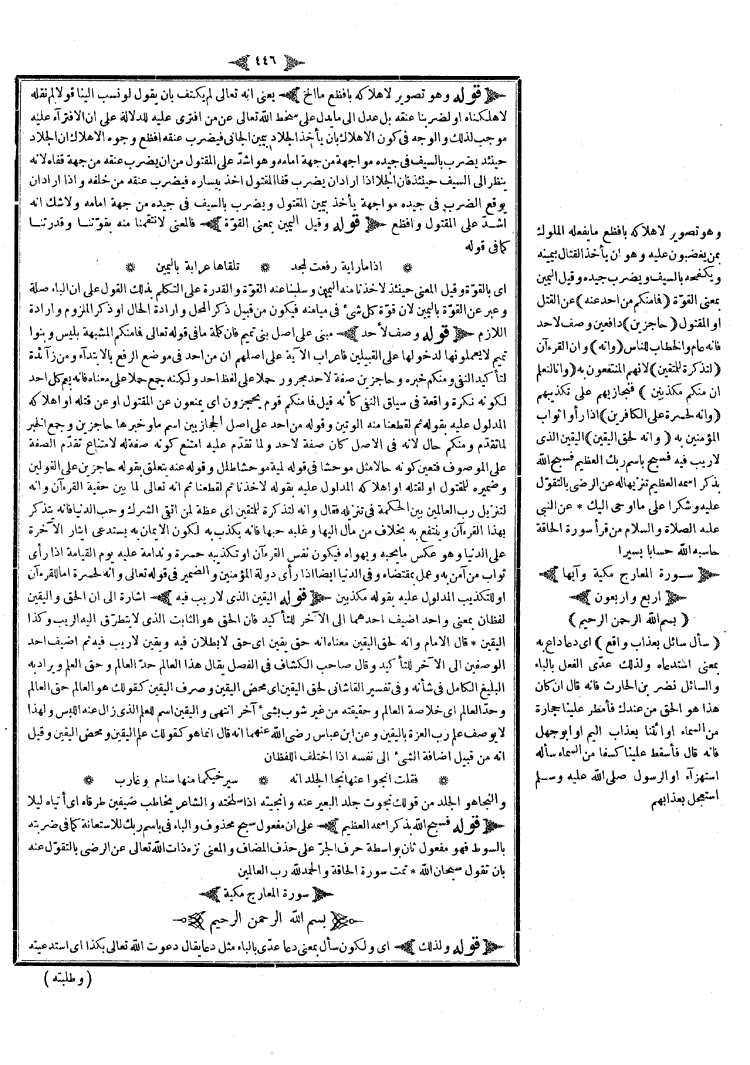 ٤٤٦
قوله وهو تصوير لاهلاكه بافظع ماالخ يعنى انه تعالى لم يكتف بان يقول لو نسب الينا قولا لم نقله
لاهلكناه او لضربنا عنقه بل عدل الى ما يدل على سخط الله تعالى عن من افترى عليه للدلالة على ان الافتراء عليه
موجب لذلك والوجه فى كون الاهلاك بان يأخذ الجلاد بيمين الجانى فيضرب عنقه افظع وجوه الاهلاك ان الجلاد
حينئذ يضرب بالسيف فى جيده مواجهة من جهة امامه وهو اشدّ على المقتول من ان يضرب عنقه من جهة قفاه لانه
ينظر الى السيف حينئذ فان الجلاد اذا اراد ان يضرب قفا المقتول اخذ بيساره فيضرب عنقه من خلفه و اذا اراد ان
يوقع الضرب فى جيده مواجهة يأخذ بيمين المقتول ويضرب بالسيف فى جيده من جهة امامه ولا شك انه
اشدّ على المقتول وافظع قوله وقيل اليمين بمعنى القوّة فالمعنى لانتقمنا منه بقوّتنا وقدرتنا
كما فى قوله
* اذا ماراية رفعت لمجد * تلقاها عرابة باليمين *
اى بالقوّة وقيل المعنى حينئذ لاخذنا منه اليمين وسلبنا عنه القوّة والقدرة على التكلم بذلك القول على ان الباء صلة
وعبر عن القوّة باليمين لان قوّة كل شئ فى ميامنه فيكون من قبيل ذكر المحل وارادة الحال او ذكر الملزوم وارادة
اللازم قوله وصف لأحد مبنى على اصل بنى تميم فان كلمة ما فى قوله تعالى فما منكم المشبهة بليس وبنوا
تميم لا يعملونها لدخولها على القبيلين فاعراب الآية على اصلهم ان من احد فى موضع الرفع بالابتدآء ومن زآئدة
لتأكيد النفى ومنكم خبره وحاجزين صفة لاحد مجرور حملا على لفظ احد ولكنه جمع حملا على معناه فانه يعم كل احد
لكونه نكرة واقعة فى سياق النفى كأنه قيل فما منكم قوم يحجزون اى يمنعون عن المقتول او عن قتله او اهلاكه
المدلول عليه بقوله ثم لقطعنا منه الوتين وقوله من احد على اصل الحجازيين اسم ما وخبرها حاجزين وجمع الخبر
لما تقدّم ومنكم حال لانه فى الاصل كان صفة لاحد ولما تقدّم عليه امتنع كونه صفة له لامتناع تقدّم الصفة
على الموصوف فتعين كونه حالا مثل موحشا فى قوله لمية موحشا طلل وقوله عنه يتعلق بقوله حاجزين على القولين
وضميره للمقتول او لقتله او اهلاكه المدلول عليه بقوله لاخذنا ثم لقطعنا ثم انه تعالى لما بين حقية القرءآن وانه
لتنزيل رب العالمين بين الحكمة فى تنزيله فقال وانه لتذكرة للمتقين اى عظة لمن اتقى الشرك وحب الدنيا فانه يتذكر
بهذا القرءآن وينتفع به بخلاف من مال اليها وغلبه حبها فانه يكذب به لكون الايمان به يستدعى ايثار الآخرة
على الدنيا وهو عكس ما يحبه ويهواه فيكون نفس القرءآن او تكذيبه حسرة وندامة عليه يوم القيامة اذا رأى
ثواب من آمن به وعمل بمقتضاه وفى الدنيا ايضا اذا رأى دولة المؤمنين والضمير فى قوله تعالى وانه لحسرة اما للقرءآن
او للتكذيب المدلول عليه بقوله مكذبين قوله اليقين الذى لاريب فيه اشارة الى ان الحق واليقين
لفظان بمعنى واحد اضيف احدهما الى الآخر للتأكيد فان الحق هو الثابت الذى لا يتطرّق اليه الريب وكذا
اليقين * قال الامام وانه لحق اليقين معناه انه حق يقين اى حق لابطلان فيه ويقين لاريب فيه ثم اضيف احد
الوصفين الى الآخر للتأكيد وقال صاحب الكشاف فى الفصل يقال هذا العالم حدّ العالم وحق العلم ويراد به
البليغ الكامل فى شأنه وفى تفسير القاشانى لحق اليقين اى محض اليقين وصرف اليقين كقولك هو العالم حق العالم
وحدّ العالم اى خلاصة العالم وحقيقته من غير شوب بشئ آخر انتهى واليقين اسم للعلم الذى زال عنه اللبس ولهذا
لا يوصف علم رب العزة باليقين وعن ابن عباس رضى الله عنهما انه قال انما هو كقولك علم اليقين ومحض اليقين وقيل
انه من قبيل اضافة الشئ الى نفسه اذا اختلف اللفظان
* فقلت انجوا عنها نجا الجلد انه * سيرضيكما منها سنام وغارب *
والنجا هو الجلد من قولك نجوت جلد البعير عنه وانجيته اذا سلخته والشاعر يخاطب ضيفين طرقاه اى أتياه ليلا
قوله فسبح الله بذكر اسمه العظيم على ان مفعول سبح محذوف والباء فى باسم ربك للاستعانة كما فى ضربته
بالسوط فهو مفعول ثان بواسطة حرف الجرّ على حذف المضاف والمعنى نزه ذات الله تعالى عن الرضى بالتقوّل عنه
بان تقول سبحان الله * تمت سورة الحاقة والحمد لله رب العالمين
سورة المعارج مكية
بسم الله الرحمن الرحيم
قوله ولذلك اى ولكون سأل بمعنى دعا عدّى بالباء مثل دعا يقال دعوت الله تعالى بكذا اى استدعيته
(وطلبته)
وهو تصوير لاهلاكه بافظع ما يفعله الملوك
بمن يغضبون عليه وهو ان يأخذ القتال بيمينه
ويكفحه بالسيف ويضرب جيده وقيل اليمين
بمعنى القوّة (فما منكم من احد عنه) عن القتل
او المقتول (حاجزين) دافعين وصف لاحد
فانه عام والخطاب للناس (وانه) وان القرءآن
(لتذكرة للمتقين) لانهم المنتفعون به (وانا لنعلم
ان منكم مكذبين) فنجازيهم على تكذيبهم
(وانه لحسرة على الكافرين) اذا رأوا ثواب
المؤمنين به (وانه لحق اليقين) اليقين الذى
لاريب فيه فسبح باسم ربك العظيم فسبح الله
بذكر اسمه العظيم تنزيها له عن الرضى بالتقوّل
عليه وشكرا على ما اوحى اليك * عن النبى
عليه الصلاة والسلام من قرأ سورة الحاقة
حاسبه الله حسابا يسيرا
سورة المعارج مكية وآيها
اربع واربعون
(بسم الله الرحمن الرحيم)
(سأل سائل بعذاب واقع) اى دعا داع به
بمعنى استدعاه ولذلك عدّى الفعل بالباء
والسائل نضر بن الحارث فانه قال ان كان
هذا هو الحق من عندك فأمطر علينا حجارة
من السماء او ائتنا بعذاب اليم او ابو جهل
فانه قال فأسقط علينا كسفا من السماء سأله
استهزآء او الرسول صلى الله عليه وسلم
استعجل بعذابهم